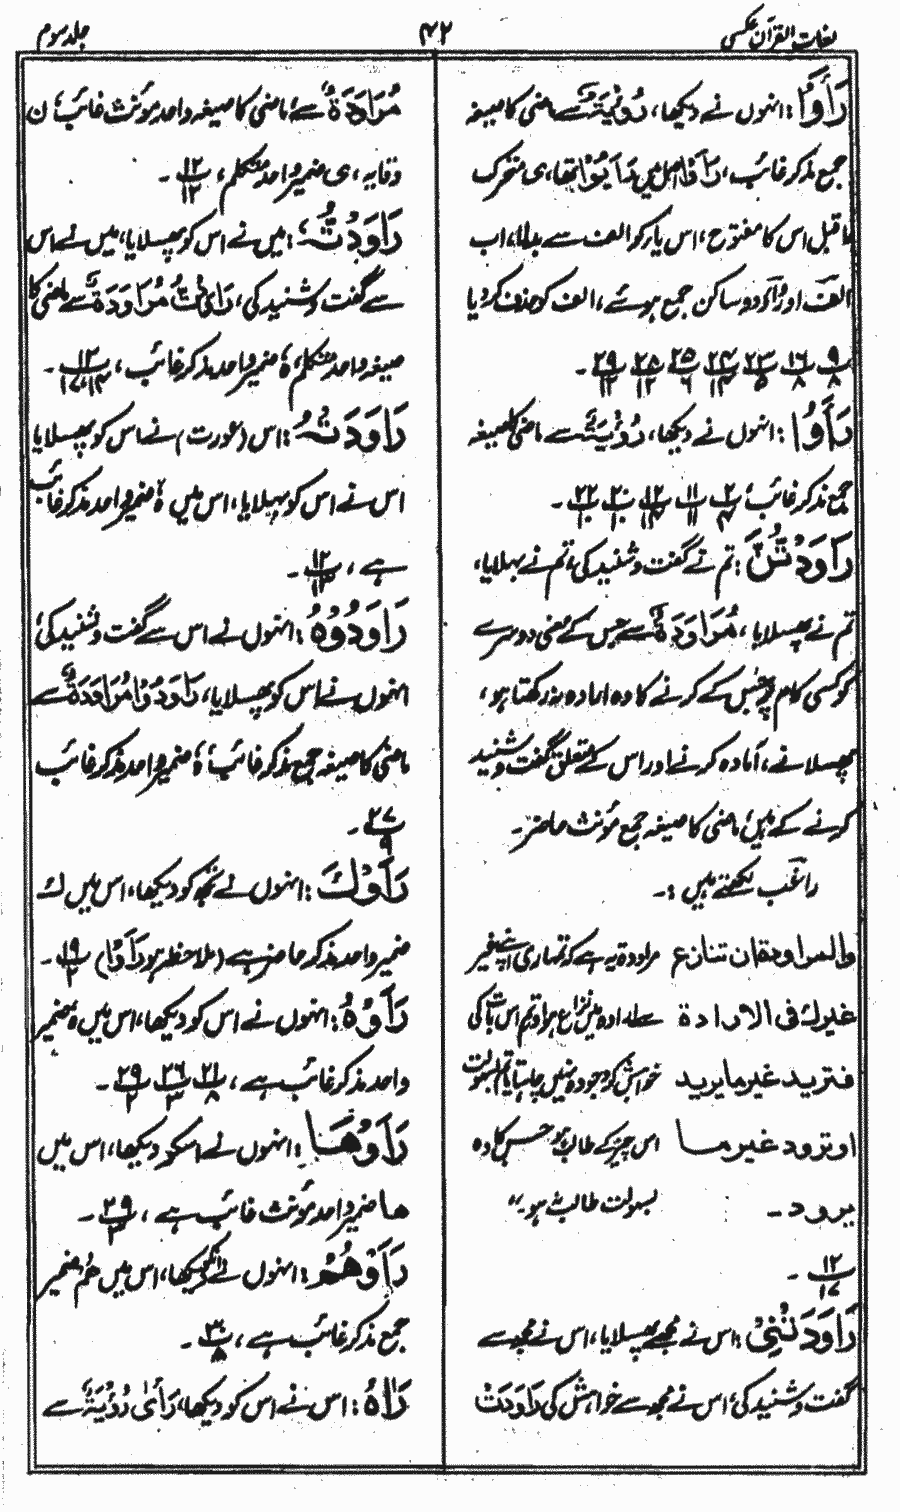 لغات القرآن عکسی
۴۲
جلد سوم
رَأَوْا : انہوں نے دیکھا، رُؤْیَۃٌ سے ماضی کا صیغہ
جمع مذکر غائب، رَأَوْا اصل میں رَأَیُوْا تھا، ی متحرک
ماقبل اس کا مفتوح، اس یاء کو الف سے بدلا، اب
الف اور واؤ دو ساکن جمع ہوئے، الف کو حذف کر دیا
۹/۸ ۱۶/۸ ۲۳/۵ ۲۴/۱۴ ۲۵/۶ ۲۸/۱۲ ۲۹/۱۲ -
رَأَوُا : انہوں نے دیکھا، رُؤْیَۃٌ سے ماضی کا صیغہ
جمع مذکر غائب، ۲/۴ ۱۱/۱۱ ۱۲/۱۴ ۲۰/۱۰ ۲۲/۱۰ -
رَاوَدْتُّنَّ : تم نے گفت و شنید کی، تم نے بہلایا،
تم نے پھسلایا، مُرَاوَدَۃٌ سے جس کے معنی دوسرے
کو کسی کام پر جس کے کرنے کا وہ ارادہ نہ رکھتا ہو،
پھسلانے، آمادہ کرنے اور اس کے متعلق گفت و شنید
کرنے کے ہیں، ماضی کا صیغہ جمع مؤنث حاضر -
راغب لکھتے ہیں :-
والمراودۃ ان تنازع مراودۃ یہ ہے کہ تمہاری اپنے غیر
غیرك فی الارادة سے ارادہ میں نزاع ہو اور تم اس بات کی
فترید غیر ما یرید خواہش کرو جو وہ نہیں چاہتا یا تم بسہولت
او ترود غیر مـا اس چیز کے طالب ہو جس کا وہ
یرود - بسہولت طالب ہو -"
۱۲/۱۷ -
رَاوَدَتْنِیْ : اس نے مجھے پھسلایا، اس نے مجھ سے
گفت و شنید کی، اس نے مجھ سے خواہش کی رَاوَدَتْ
مُرَاوَدَۃٌ سے ماضی کا صیغہ واحد مؤنث غائب، ن
وقایہ، ی ضمیر واحد متکلم، ۱۲/۱۲ -
رَاوَدْتُّہٗ : میں نے اس کو پھسلایا، میں نے اس
سے گفت و شنید کی، رَاوَدْتُّ مُرَاوَدَۃٌ سے ماضی کا
صیغہ واحد متکلم، ہٗ ضمیر واحد مذکر غائب، ۱۲/۱۴،۱۷ -
رَاوَدَتْہُ : اس (عورت) نے اس کو پھسلایا
اس نے اس کو بہلایا، اس میں ہٗ ضمیر واحد مذکر غائب
ہے، ۱۲/۱۳ -
رَاوَدُوْہُ : انہوں نے اس سے گفت و شنید کی،
انہوں نے اس کو پھسلایا، رَاوَدُوْا مُرَاوَدَۃٌ سے
ماضی کا صیغہ جمع مذکر غائب، ہٗ ضمیر واحد مذکر غائب
۲۷/۹ -
رَأَوْكَ : انہوں نے تجھ کو دیکھا، اس میں ك
ضمیر واحد مذکر حاضر ہے (ملاحظہ ہو رَأَوْا) ۱۹/۲ -
رَأَوْہُ : انہوں نے اس کو دیکھا، اس میں ہٗ ضمیر
واحد مذکر غائب ہے، ۲۱/۸ ۲۶/۳ ۲۹/۲ -
رَأَوْھَـا : انہوں نے اسکو دیکھا، اس میں
ھا ضمیر واحد مؤنث غائب ہے، ۲۹/۳ -
رَأَوْھُمْ : انہوں نے انکو دیکھا، اس میں ھُمْ ضمیر
جمع مذکر غائب ہے، ۳۰/۸ -
رَاٰہُ : اس نے اس کو دیکھا، رَأٰی رُؤْیَۃٌ سے